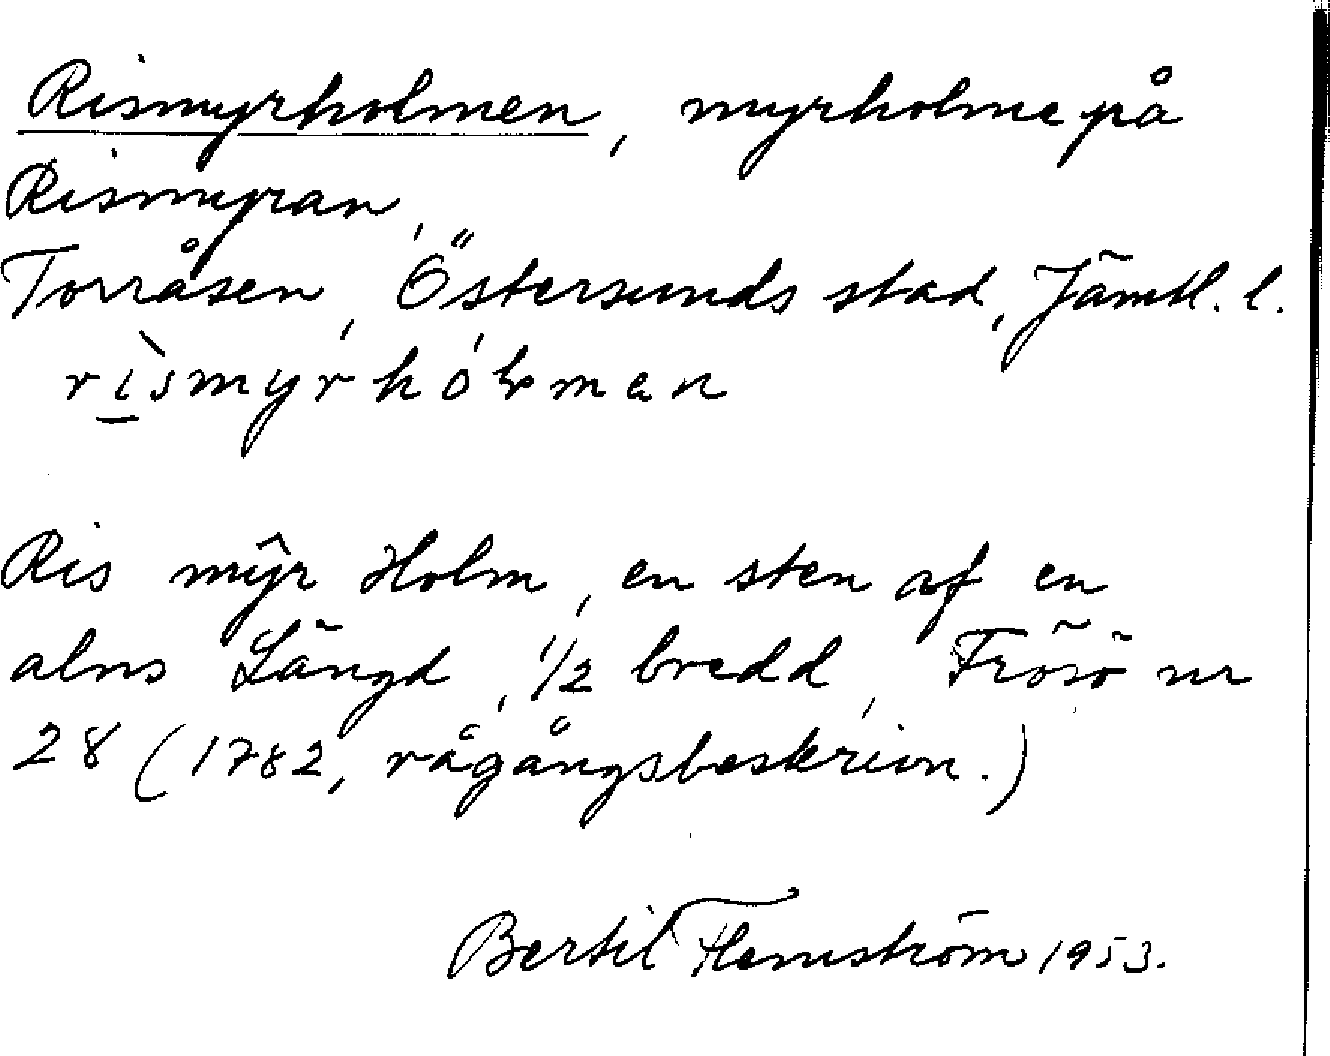 Rismyrholmen, myrholme på
Rismyran,
Torråsen, Östersunds stad, Jämtl. l.
rìsmyrhólmen
Ris mÿr Holm, en sten af en
alns Längd, 1/2 bredd, Frösö nr
28 (1782, rågångsbeskrivn.)
Bertil Flemström 1953.